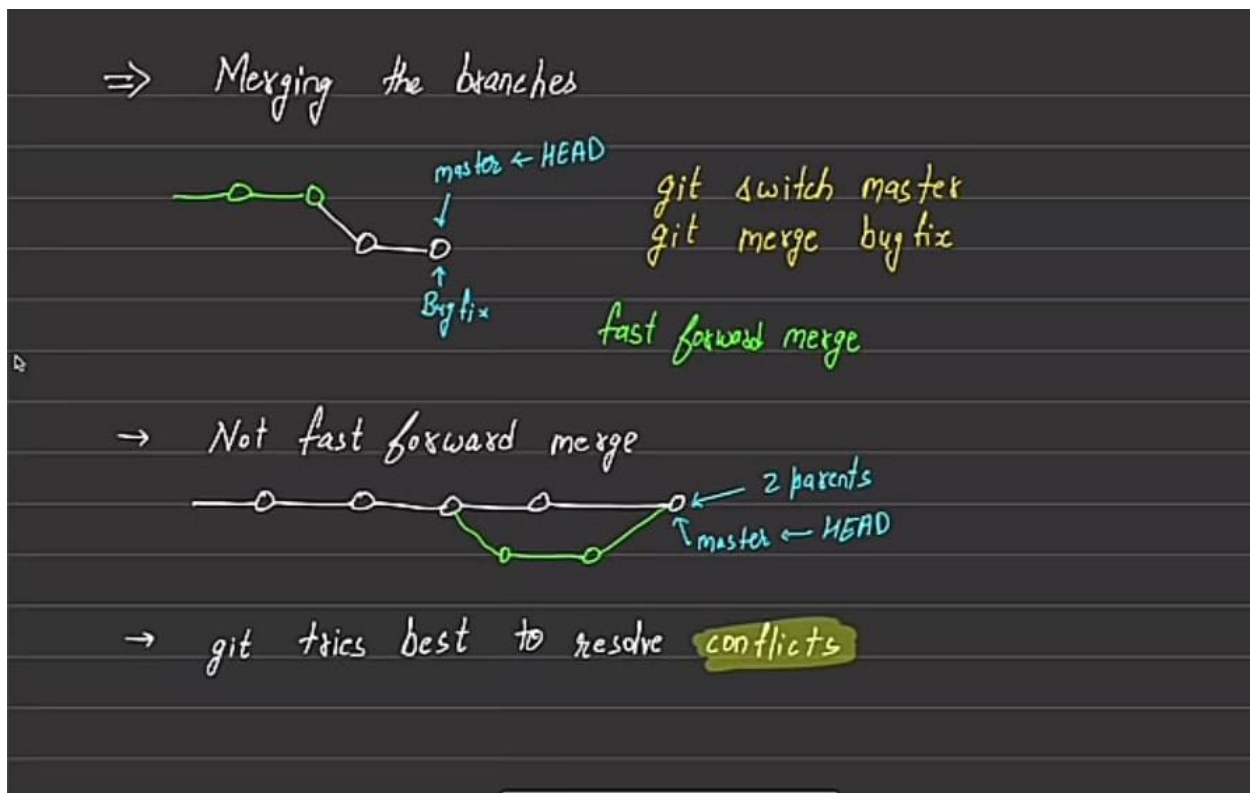 ⇒ Merging the branches
master ← HEAD
git switch master
git merge bugfix
Bugfix
fast forward merge
→ Not fast forward merge
2 parents
master ← HEAD
→ git tries best to resolve conflicts